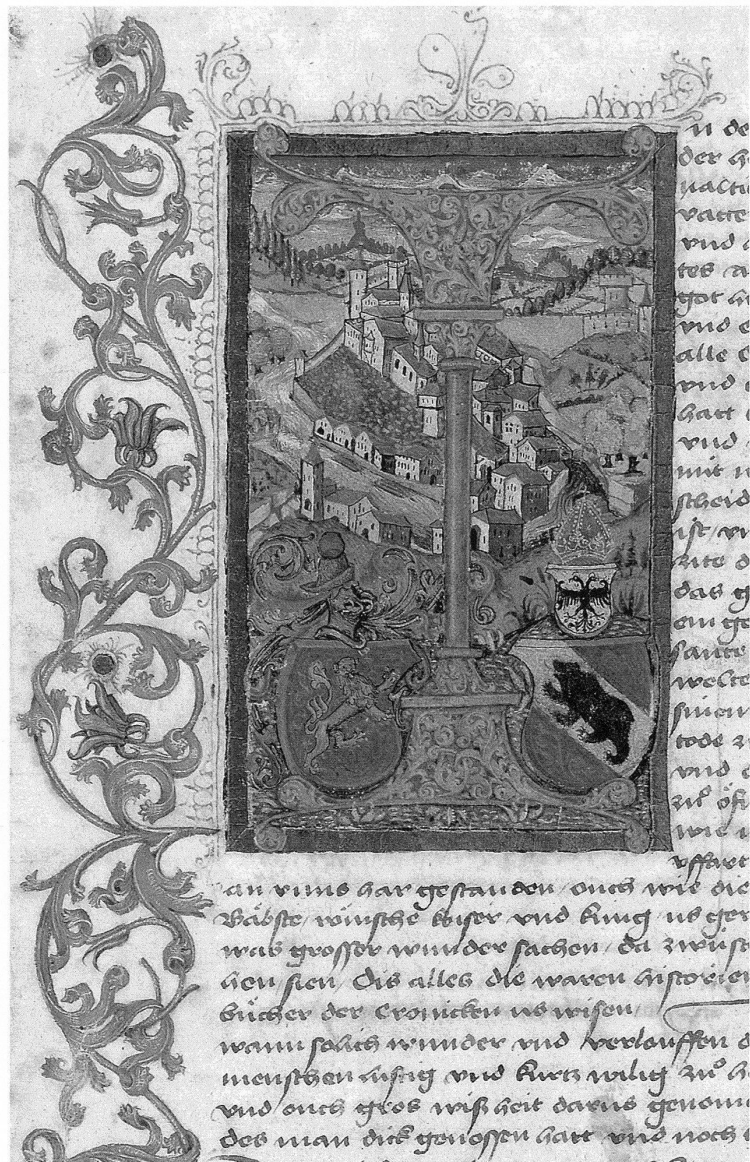 n de
der h
nalti
vatte
vnd
tes a
got h
vnd e
alle
vnd
hatt
vnd
mit
scheid
ist / vn
zite d
das g
ein ge
sante
wolte
sinen
tode z
vnd
zů
wie
vffart
an vnns har gestanden / ouch wie die
Bäbste / römsche keiser vnd kung us ger
was grosser wunder sachen / da zwüsc
hen sien / Dis alles die waren historien
bücher der Cronicken us wisen /
wann solich wunder vnd verlouffen
menschen lustig vnd kurtz wilig zů h
vnd ouch gros wißheit darus genom
des man dick genossen hatt vnd noch